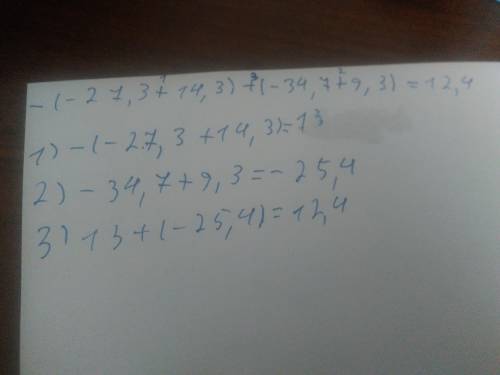 -(-27,3+14,3)+(-34,7+9,3)=12,4
1)-(-27,3+14,3)=13
2)-34,7+9,3=-25,4
3)13+(-25,4)=12,4